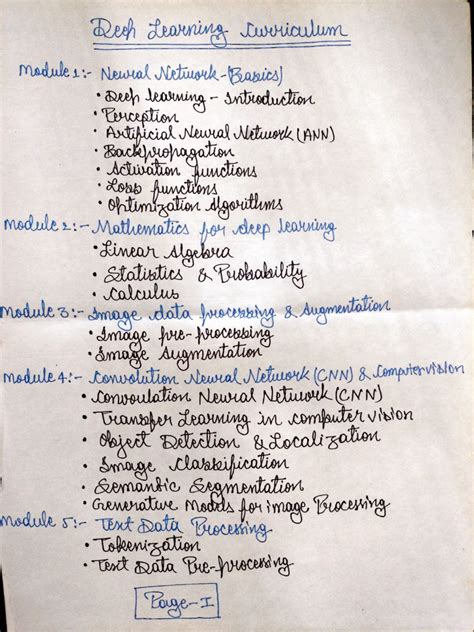 Deep Learning Curriculum
Module 1:- Neural Network-(Basics)
• Deep learning - Introduction
• Perception
• Artificial Neural Network (ANN)
• Backpropagation
• Activation functions
• Loss functions
• Optimization Algorithms
Module 2:- Mathematics for deep learning
• Linear Algebra
• Statistics & Probability
• Calculus
Module 3:- Image data processing & Augmentation
• Image pre-processing
• Image Augmentation
Module 4:- Convolution Neural Network (CNN) & Computer vision
• Convoulation Neural Network (CNN)
• Transfer Learning in computer vision
• Object Detection & Localization
• Image Classification
• Semantic Segmentation
• Generative Models for image Processing
Module 5:- Text Data Processing
• Tokenization
• Text Data Pre-processing
Page-I